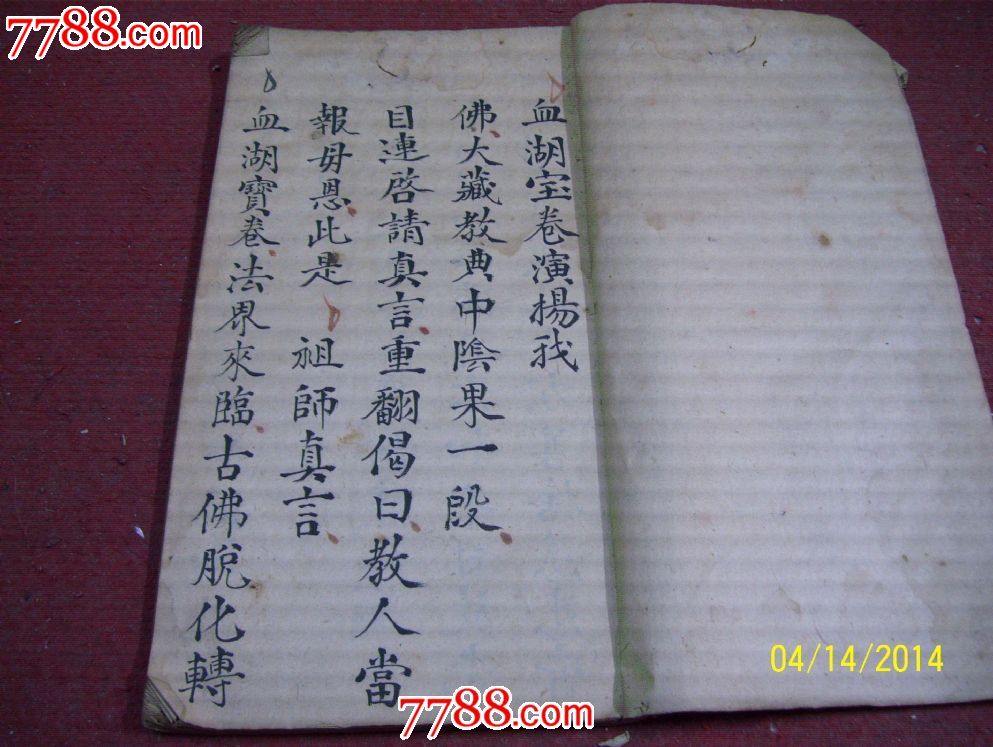 7788.com
血湖宝卷演揚我
佛大藏教典中陰果一段
目連啓請真言重翻偈曰教人當
報毋恩此是 祖師真言
血湖寶卷法界來臨古佛脫化轉
04/14/2014
7788.com